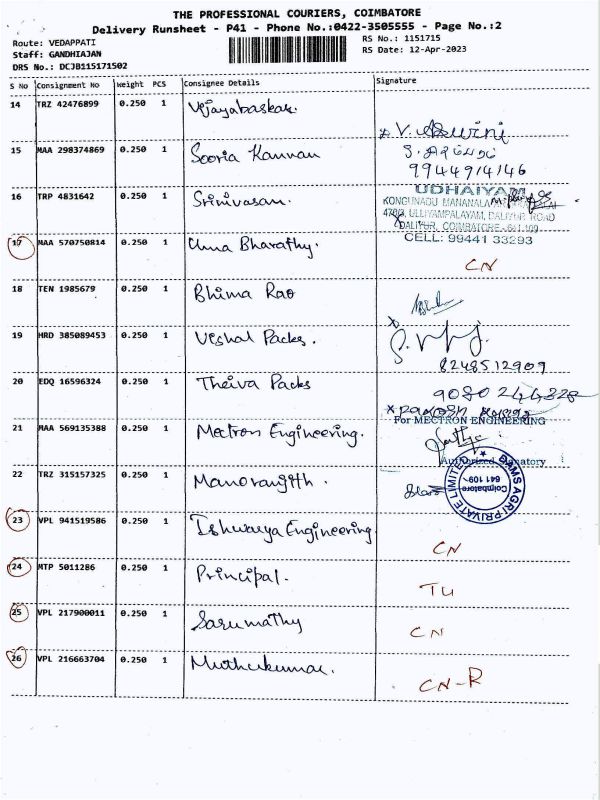 THE PROFESSIONAL COURIERS, COIMBATORE
Delivery Runsheet - P41 - Phone No.:0422-3505555 - Page No.:2
Route: VEDAPPATI
Staff: GANDHIAJAN
DRS No.: DCJB115171502
RS No.: 1151715
RS Date: 12-Apr-2023
S No Consignment No Weight PCS Consignee Details Signature
14 TRZ 42476899 0.250 1 Vijayabaskar.
V. Aswini
15 MAA 298374869 0.250 1 Sooria Kannan
9944914146
16 TRP 4831642 0.250 1 Srinivasan.
UDHAIYAM
KONGUNADU MANAMALAI
470/3, ULLIYAMPALAYAM, DALIYUR ROAD
DALIYUR, COIMBATORE-641 109
CELL: 99441 33293
17 MAA 570750814 0.250 1 Uma Bharathy.
CN
18 TEN 1985679 0.250 1 Bhima Rao
19 HRD 385089453 0.250 1 Vishal Packs.
8248512909
20 EDQ 16596324 0.250 1 Theiva Packs
9080 244328
21 MAA 569135388 0.250 1 Mectron Engineering.
For MECTRON ENGINEERING
Authorized Signatory
22 TRZ 315157325 0.250 1 Manoranjith.
DAMS AGRI PRIVATE LIMITED
Coimbatore
641 109
23 VPL 941519586 0.250 1 Ishwarya Engineering.
CN
24 MTP 5011286 0.250 1 Principal.
TU
25 VPL 217900011 0.250 1 Sarumathy
CN
26 VPL 216663704 0.250 1 Muthukumar.
CN-R